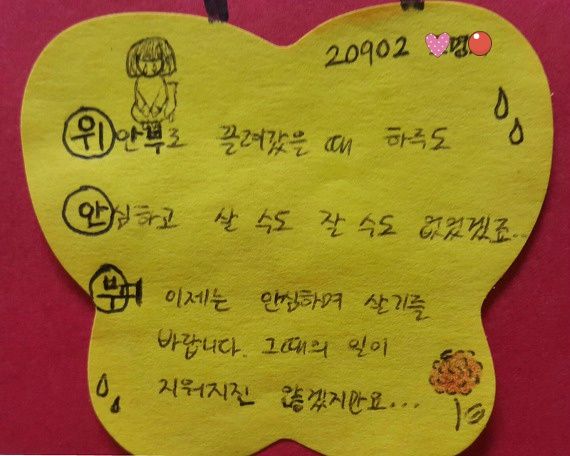 20902 명
위안부로 끌려갔을 때 하루도
안심하고 살 수도 잘 수도 없었겠죠..
부디 이제는 안심하며 살기를
바랍니다. 그때의 일이
지워지진 않겠지만요...